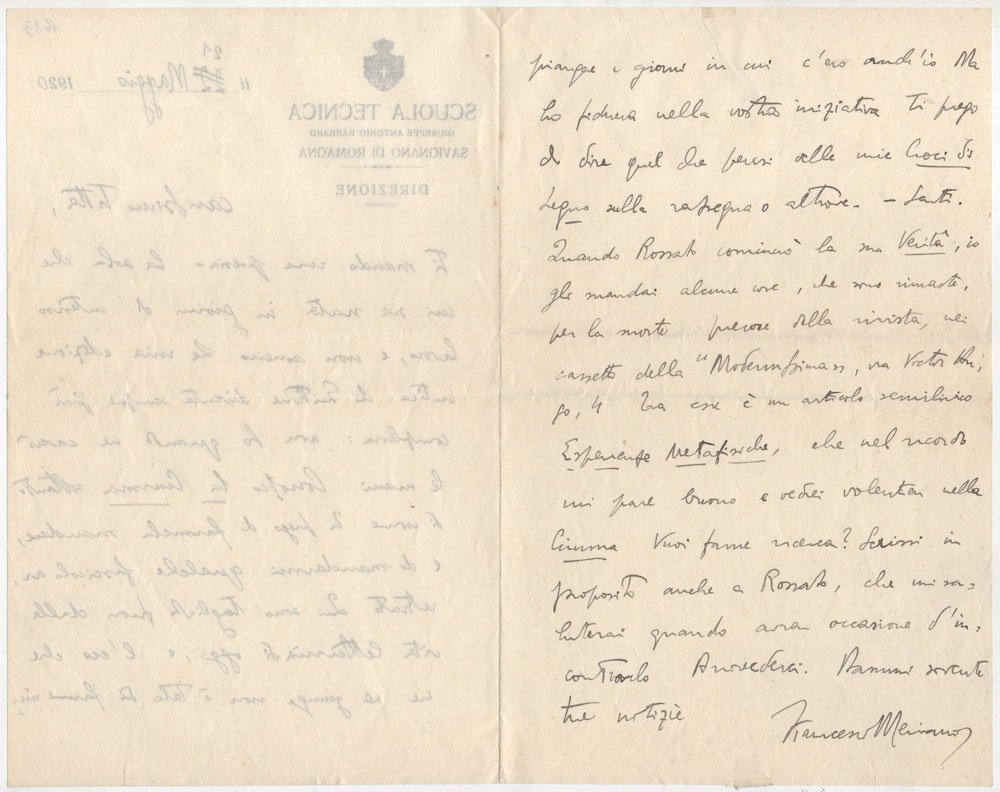 li 21 Maggio 1920
SCUOLA TECNICA
GIUSEPPE ANTONIO BARBARO
SAVIGNANO DI ROMAGNA
DIREZIONE
Carissimo Titta,
Ti mando una poesia la sola che
mi sia nata in giorni di intenso
lavoro, e non ameno. La mia edizione
critica di diventa sempre più
complessa: non so quando ne caverò
le mani Conosco la Ciurma soltanto
di nome Ti prego di farmela mandare,
e di mandarmi qualche fascicolo ar,
retrato Qui sono tagliato fuori dalla
vita letteraria di oggi, e l'eco che
ne giunge non è tale da farmi rim,
piangere i giorni in cui c'ero anch'io Ma
ho fiducia nella vostra iniziativa Ti prego
di dire quel che pensi delle mie Croci di
Legno sulla rassegna o altrove. –
Quando Rossato cominciò la sua Verità, io
gli mandai alcune cose, che sono rimaste,
per la morte precoce della rivista, nei
cassetti della "Modernissima", via Victor Hu,
go, 4 Tra esse è un articolo semilirico
Esperienze Metafisiche, che nel ricordo
mi pare buono e vedrei volentieri nella
Ciurma Vuoi farne ricerca? Scrissi in
proposito anche a Rossato, che mi sa-
luterai quando avrai occasione d'in-
contrarlo Arrivederci. Dammi sovente
tue notizie
Francesco Meriano